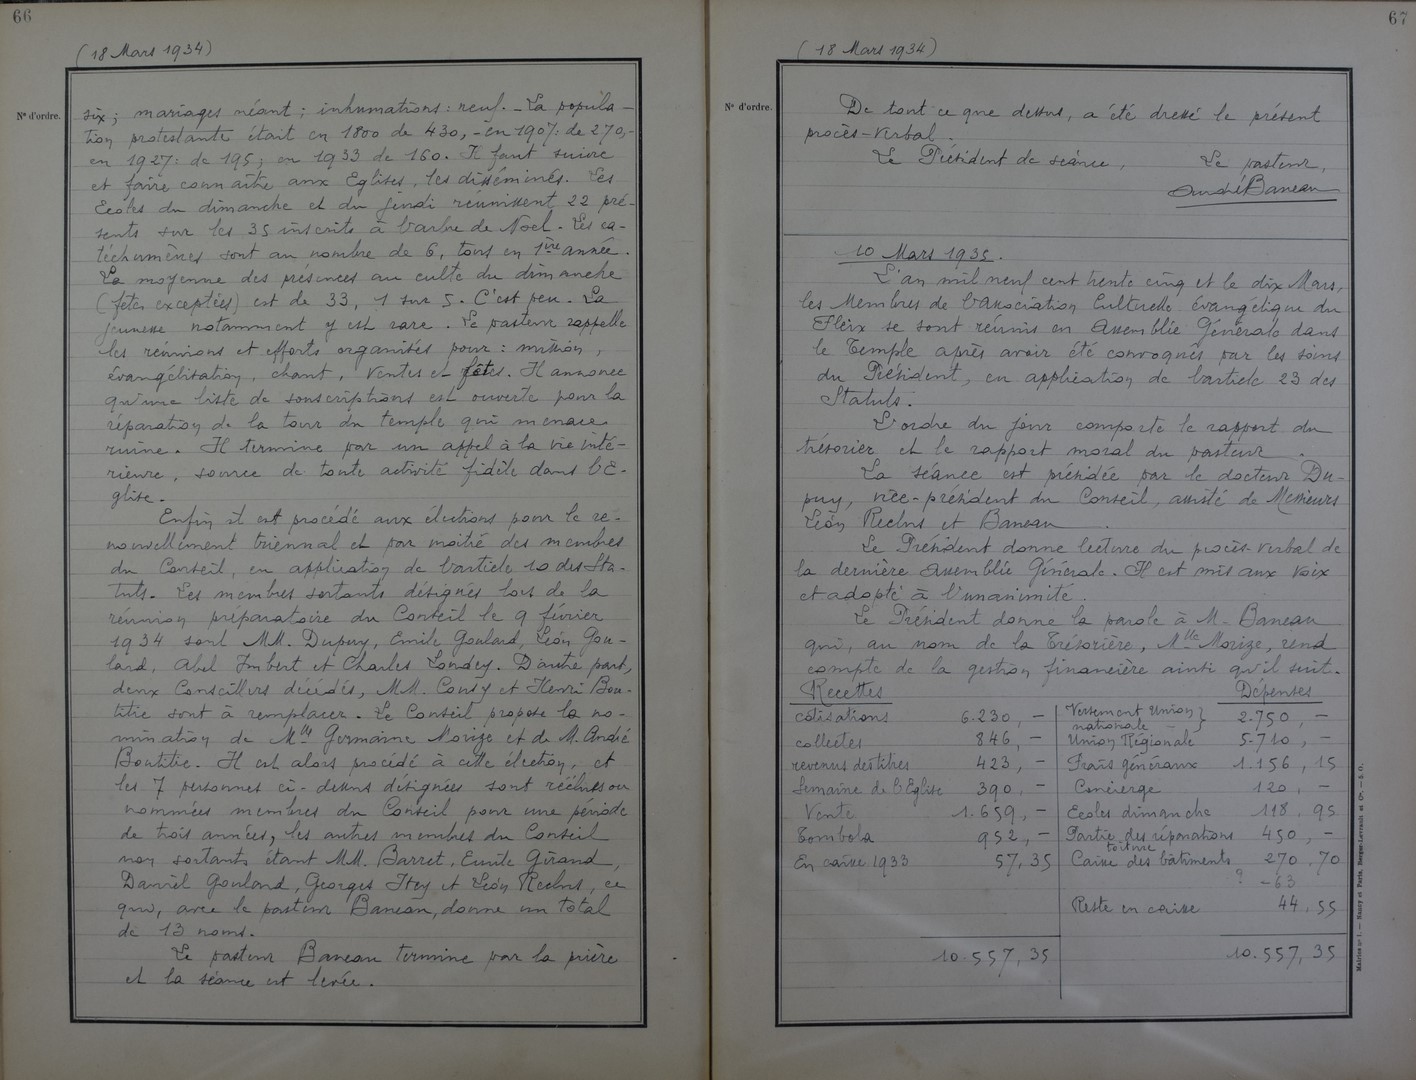 66
(18 Mars 1934)
N° d'ordre.
six; mariages néant; inhumations: neuf. - La popula-
tion protestante était en 1800 de 430, - en 1907: de 270, -
en 1927: de 195; en 1933 de 160. Il faut suivre
et faire connaître aux Eglises, les disséminés. Les
Ecoles du dimanche et du jeudi réunissent 22 pré-
sents sur les 35 inscrits à l'arbre de Noel. Les ca-
téchumènes sont au nombre de 6, tous en 1ère année.
La moyenne des présences au culte du dimanche
(fêtes exceptées) est de 33, 1 sur 5. C'est peu. La
jeunesse notamment y est rare. Le pasteur rappelle
les réunions et efforts organisés pour: mission,
évangélisation, chant, ventes et fêtes. Il annonce
qu'une liste de souscriptions est ouverte pour la
réparation de la tour du temple qui menace
ruine. Il termine par un appel à la vie inté-
rieure, source de toute activité fidèle dans l'E-
glise.
Enfin il est procédé aux élections pour le re-
nouvellement triennal et par moitié des membres
du Conseil, en application de l'article 10 des Sta-
tuts. Les membres sortants désignés lors de la
réunion préparatoire du Conseil le 9 février
1934 sont MM. Dupuy, Emile Goulard, Léon Gou-
lard, Abel Imbert et Charles Landey. D'autre part,
deux Conseillers décédés, MM. Consy et Henri Bou-
titie sont à remplacer. Le Conseil propose la no-
mination de Mlle Germaine Morize et de M. André
Boutitie. Il est alors procédé à cette élection, et
les 7 personnes ci-dessus désignées sont réélues ou
nommées membres du Conseil pour une période
de trois années, les autres membres du Conseil
non sortants étant MM. Barret, Emile Girand,
Daniel Goulard, Georges Itey et Léon Reclus, ce
qui, avec le pasteur Baneau, donne un total
de 13 noms.
Le pasteur Baneau termine par la prière
et la séance est levée.
67
(18 Mars 1934)
N° d'ordre.
De tout ce que dessus, a été dressé le présent
procès-verbal.
Le Président de séance, Le pasteur,
André Baneau
10 Mars 1935.
L'an mil neuf cent trente cinq et le dix Mars,
les Membres de l'Association Cultuelle évangélique du
Fleix se sont réunis en Assemblée Générale dans
le Temple après avoir été convoqués par les soins
du Président, en application de l'article 23 des
Statuts.
L'ordre du jour comporte le rapport du
trésorier et le rapport moral du pasteur.
La séance est présidée par le docteur Du-
puy, vice-président du Conseil, assisté de Messieurs
Léon Reclus et Baneau.
Le Président donne lecture du procès-verbal de
la dernière Assemblée Générale. Il est mis aux voix
et adopté à l'unanimité.
Le Président donne la parole à M. Baneau
qui, au nom de la Trésorière, Mlle Morize, rend
compte de la gestion financière ainsi qu'il suit.
Recettes Dépenses
cotisations 6.230, - Versement Union nationale - } 2.750, -
collectes 846, - Union Régionale 5.710, -
revenus des titres 423, - Frais généraux 1.156, 15
Semaine de l'Eglise 390, - Concierge 120, -
Vente 1.659, - Ecoles dimanche 118, 95
Tombola 952, - Partie des réparations toiture 450, -
En caisse 1933 57,35 Caisse des bâtiments 270, 70
? -63
Reste en caisse 44, 55
10.557, 35 10.557, 35
Mairies n° 1. — Nancy et Paris, Berger-Levrault et Cie. — S. O.